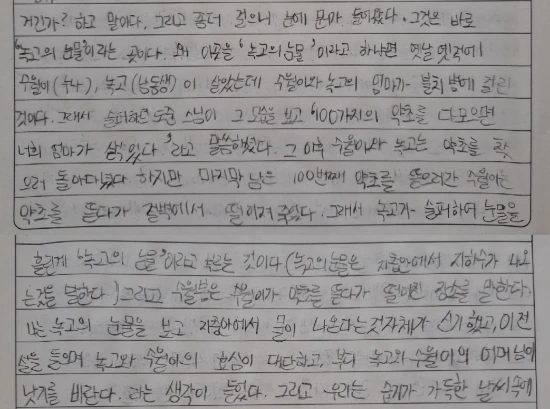 거긴가? 하고 말이다. 그리고 좀더 걸으니 눈에 문이 들어왔다. 그것은 바로
'녹고의 눈물'이라는 곳이다. 왜 이곳을 '녹고의 눈물'이라고 하냐면 옛날 옛적에
수월이(누나), 녹고(남동생)이 살았는데 수월이와 녹고의 엄마가 불치병에 걸린
것이다. 그래서 슬퍼하는 도중 스님이 그 모습을 보고 '100가지의 약초를 다 모으면
너희 엄마가 살수있다.'라고 말씀하셨다. 그 이후 수월이와 녹고는 약초를 찾
으러 돌아다녔다. 하지만 마지막 남은 100번째 약초를 뜯으러간 수월이는
약초를 뜯다가 절벽에서 떨어져 죽었다. 그래서 녹고가 슬퍼하여 눈물을
흘린게 '녹고의 눈물'이라고 하는 것이다.(녹고의눈물은 지층안에서 지하수가 나오
는것을 말한다.)그리고 수월봉은 수월이가 약초를 뜯다가 떨어진 장소를 말한다.
나는 녹고의 눈물을 보고 지층안에서 물이 나온다는것자체가 신기했고, 이 전
설을 들으며 녹고와 수월이의 효심이 대단하고, 부디 녹고와 수월이의 어머님이
낫기를 바란다. 라는 생각이 들었다. 그리고 우리는 습기가 가득한 날씨속에